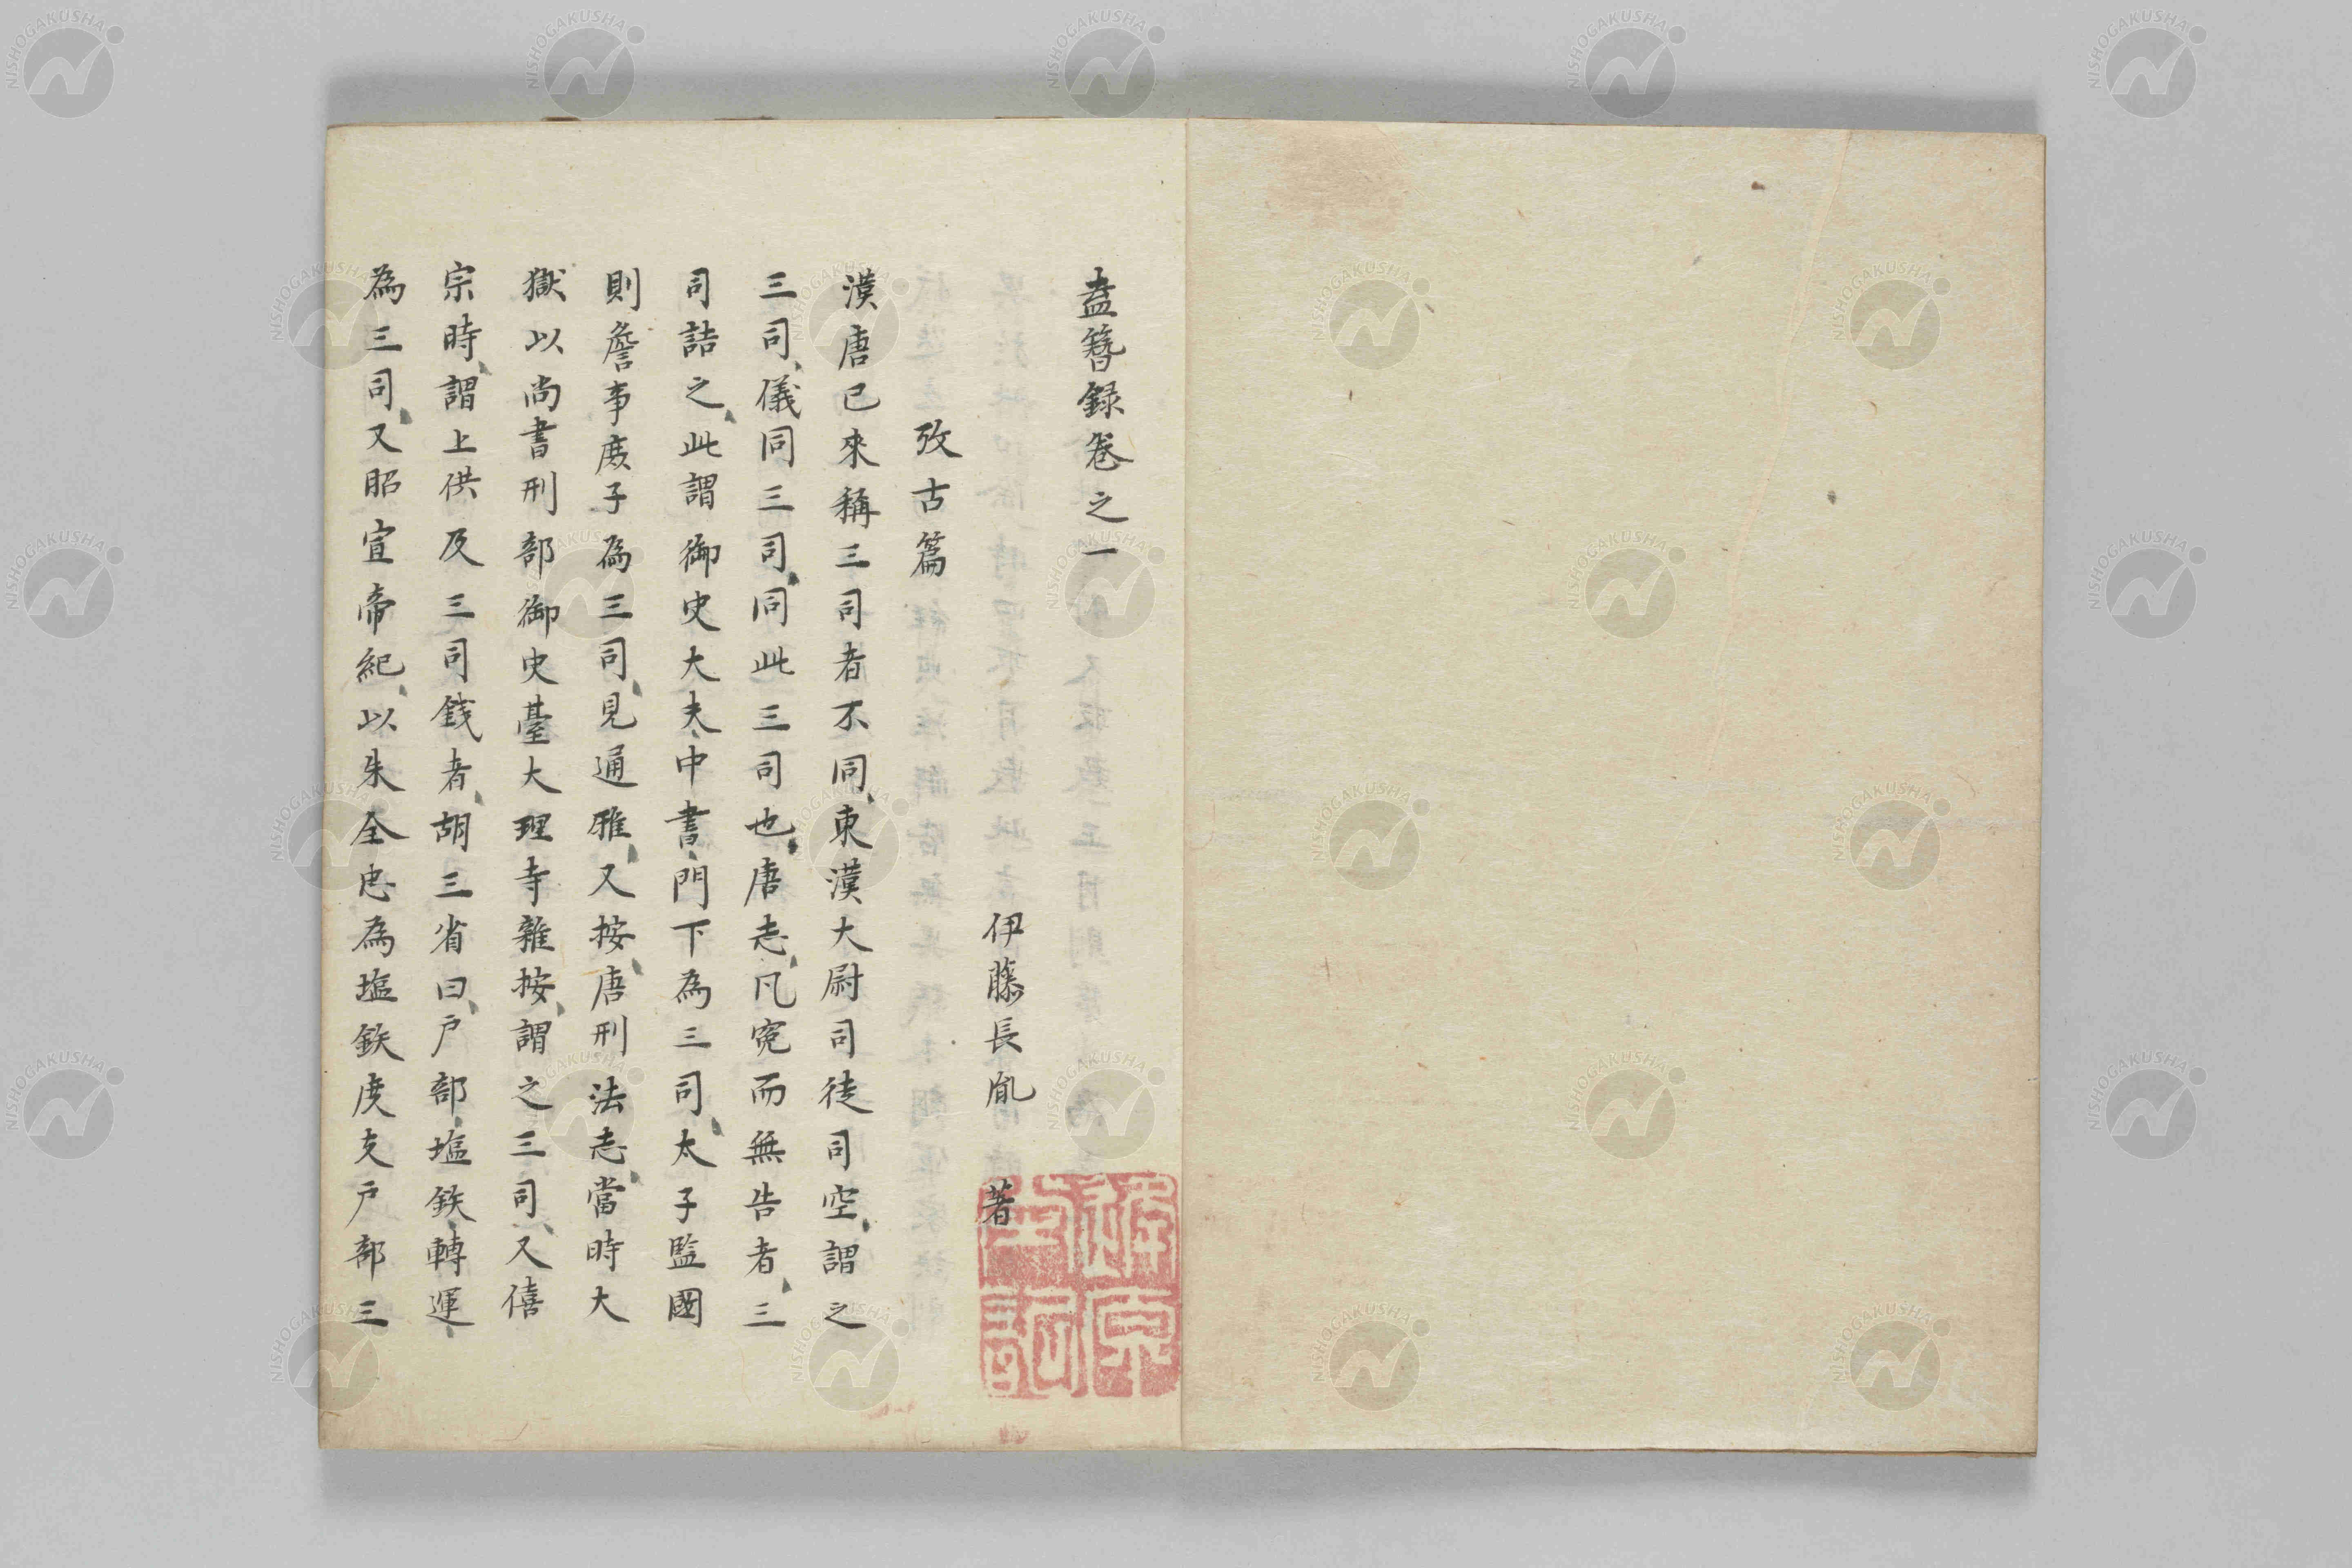 盍簪録卷之一
伊藤長胤 著
攷古篇
漢唐已來稱三司者不同、東漢大尉司徒司空、謂之
三司、儀同三司、同此三司也、唐志、凡寃而無告者、三
司詰之、此謂御史大夫中書門下為三司、太子監國
則詹事庻子為三司、見通雅、又按、唐刑法志、當時大
獄以尚書刑部御史臺大理寺雜按、謂之三司、又僖
宗時、謂上供及三司錢者、胡三省曰、戸部塩鉄轉運、
為三司、又昭宣帝紀、以朱全忠為塩鉄度支戸部三
NISHOGAKUSHA